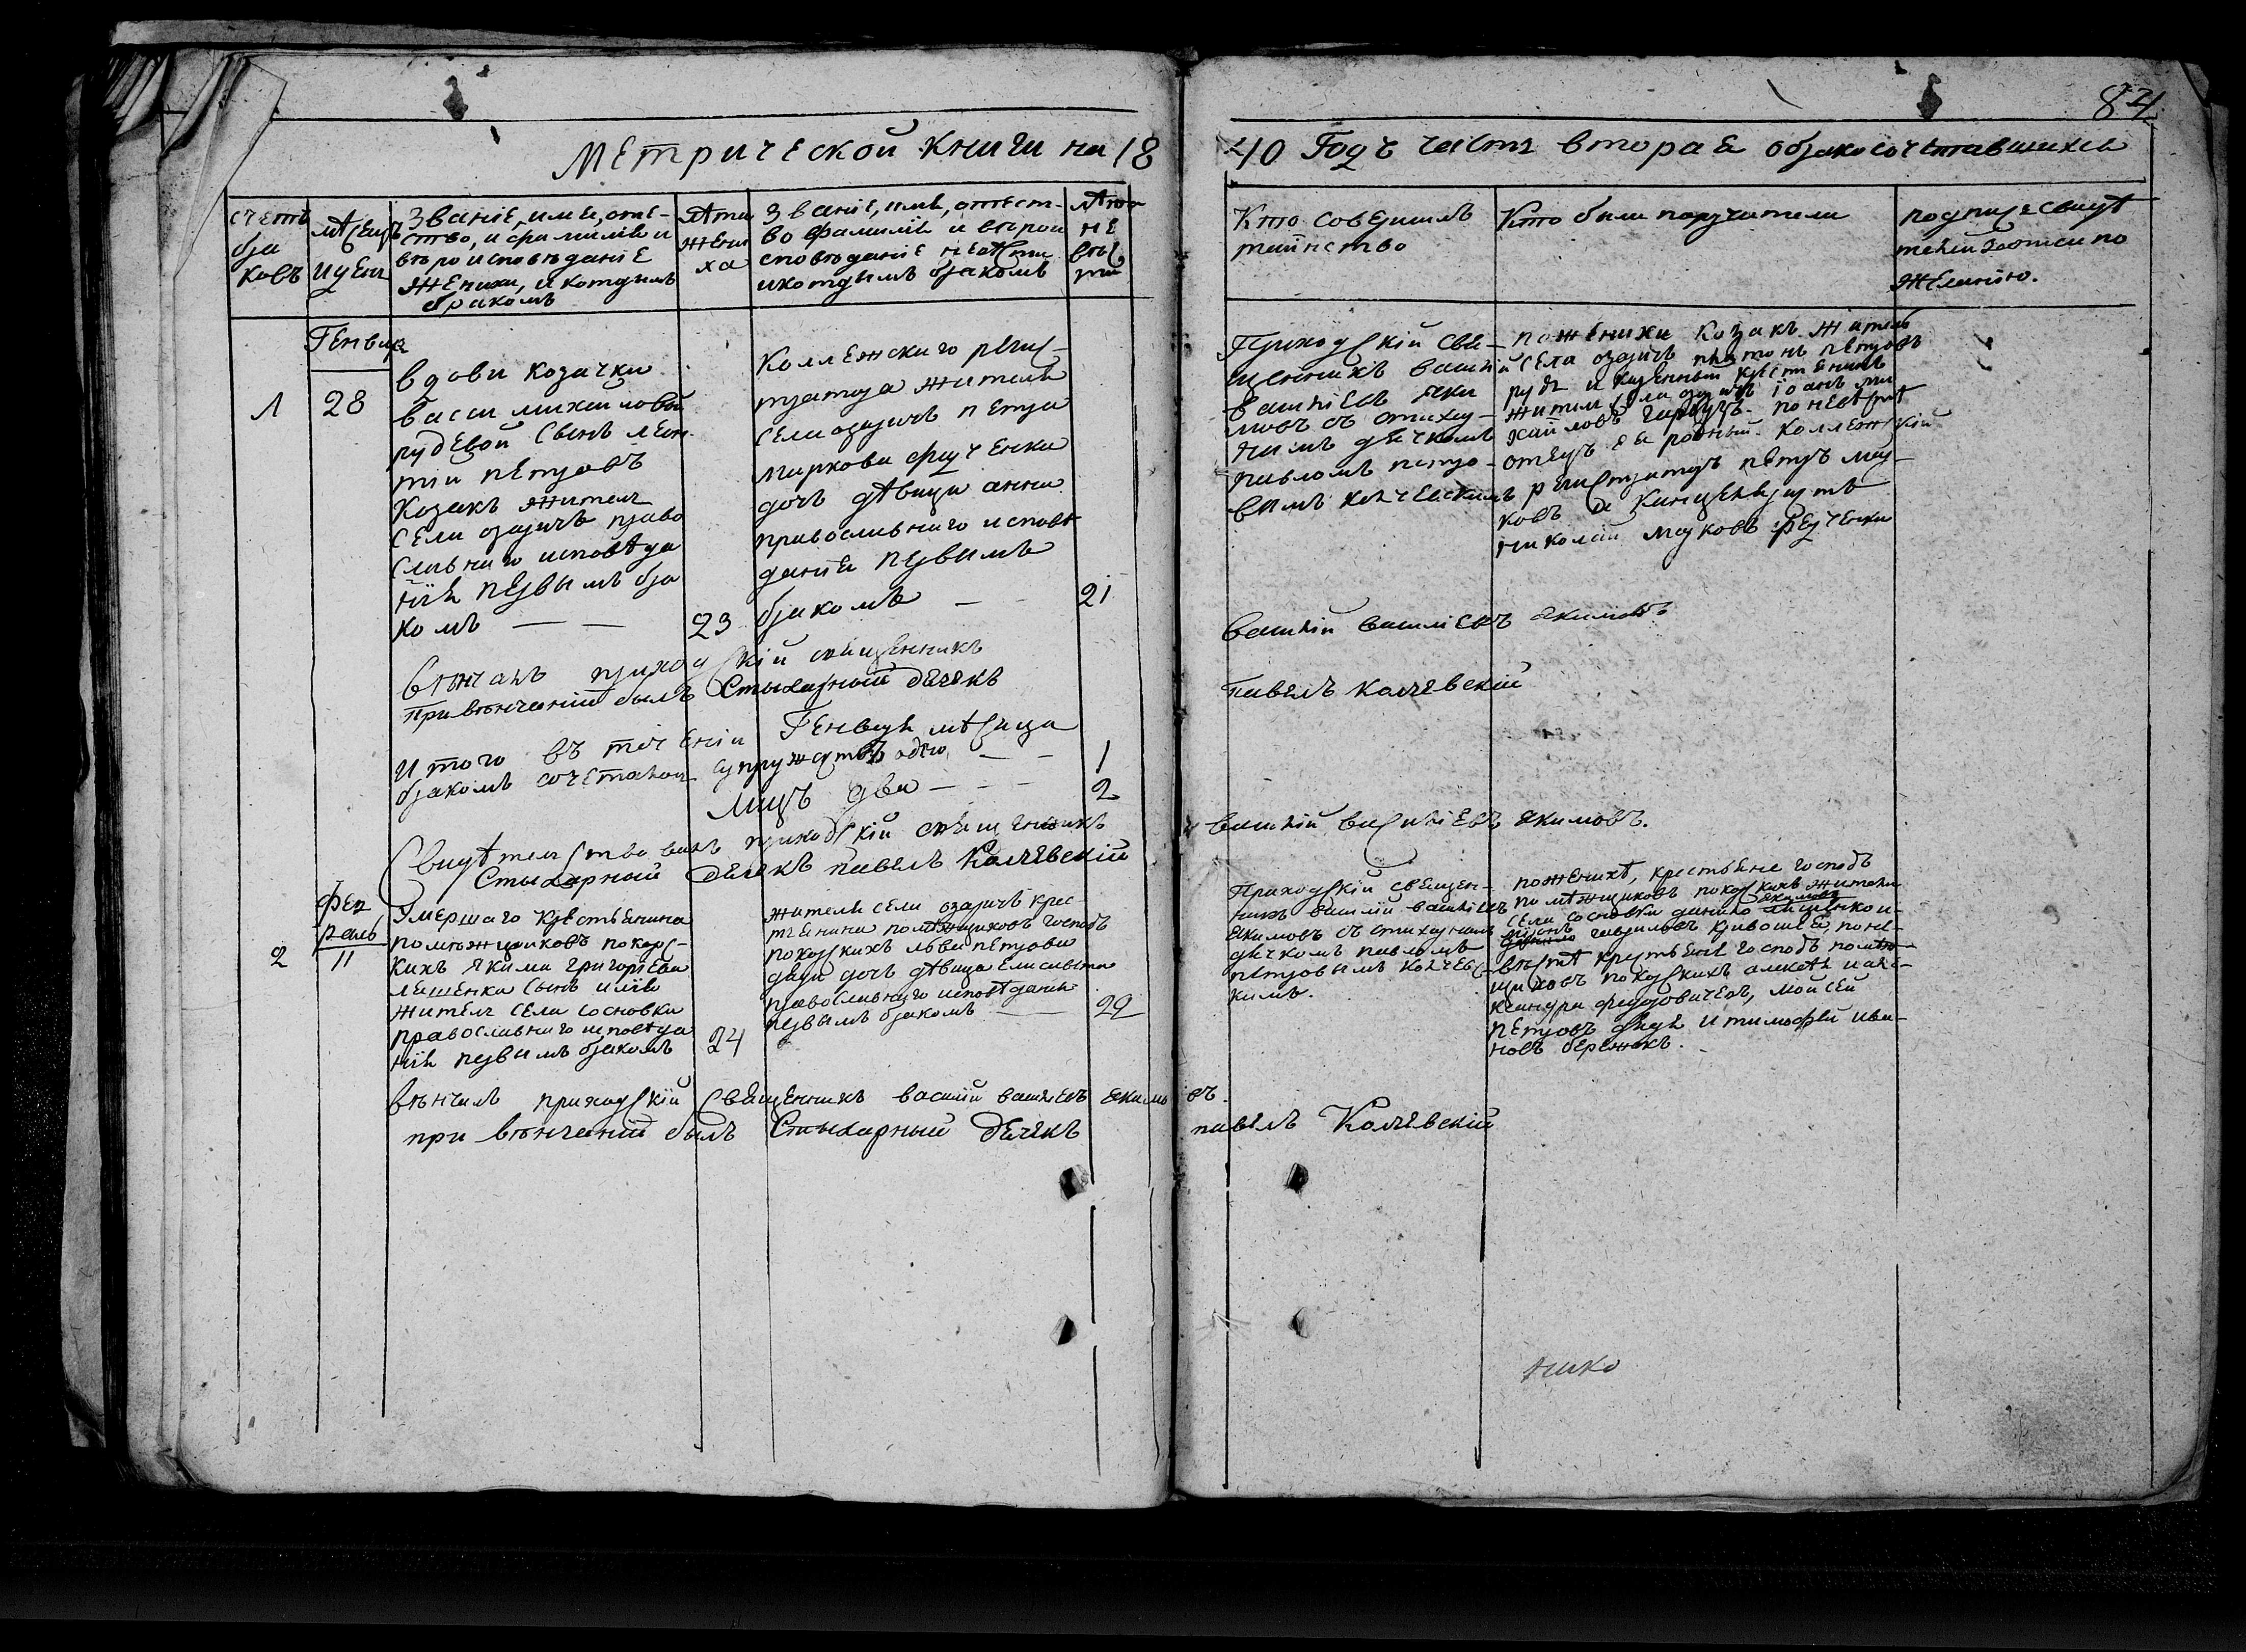 84
Метрической книги на 18
40 Годъ часть вторая о бракосочетавшихся
счетъ бра ковъ
мѣсецъ и день
Званіе, имя, отче-
ство, и фамилія и
вѣроисповѣданіе
жениха, и которымъ
бракомъ
лѣта жени ха
Званіе, имя, отчест-
во фамилія и вѣрои
сповѣданіе невѣсты
и которымъ бракомъ
лѣта не вѣс ты
Кто совершилъ
таинство
Кто были поручители
подписи свидѣ
телей записи по
желанію.
Генваря
1
28
вдовы козачки
васси михайловой
рудевой сынъ леон
тій петровъ
Козакъ житель
села озаричъ право
славнаго исповѣда
нія первымъ бра
комъ — — 23
Коллежскаго регис-
тратора жителя
села озаричъ петра
маркова
дочь дѣвица анна
православнаго исповѣ
данія первымъ
бракомъ — — 21
Приходскій свя-
щенникъ василій
василіевъ яки
мовъ съ стихар-
нымъ дячкомъ
павломъ петро-
вымъ
по жениху козакъ житель
села озаричъ платонъ петровъ
рудъ и казенный крестянинъ
житель села озаричъ іоанъ ми
хайловъ по невѣстѣ
отецъ ея родный коллежскій
регистраторъ петръ мар-
ковъ и канцеляристъ
николай марковъ
Вѣнчалъ приходскій священникъ
василій василіевъ якимовъ
При вѣнчаніи былъ Стыхарный дячекъ
павелъ
Итого въ теченіи Генваря мѣсяца
бракомъ сочетаны супружествъ одно — — 1
лицъ два — — — 2
Свидѣтельствовалъ приходскій священникъ
василій василіевъ якимовъ.
Стыхарный дячекъ павелъ
фев
раль
2
11
Умершаго крестьянина
помѣжщиковъ покорс-
кихъ якима григоріева
ляшенка сынъ илія
житель села сосновки
православнаго исповѣда
нія первымъ бракомъ 24
жителя села озаричъ крес-
тьянина помѣжщиковъ господъ
покорскихъ льва петрова
дочь дѣвица елисавета
православнаго исповѣданія
первымъ бракомъ — 29
Приходскій священ-
никъ василій василіевъ
якимовъ съ стихарнымъ
дячкомъ павломъ
петровымъ
кимъ.
по женихѣ, крестьяне господъ
помѣжщиковъ покорскихъ жители
села сосновки данило якимовъ ляшенко и
гавриловъ кривошея, по не-
вѣстѣ крестьяне господъ помѣ-
щиковъ покорскихъ алексѣя и але-
ксандра федоровичевъ, мойсей
петровъ и тимофей ива-
новъ бережокъ.
вѣнчалъ приходскій Священникъ василій василіевъ якимовъ.
при вѣнчаніи былъ Стыхарный дячекъ
павелъ
нико